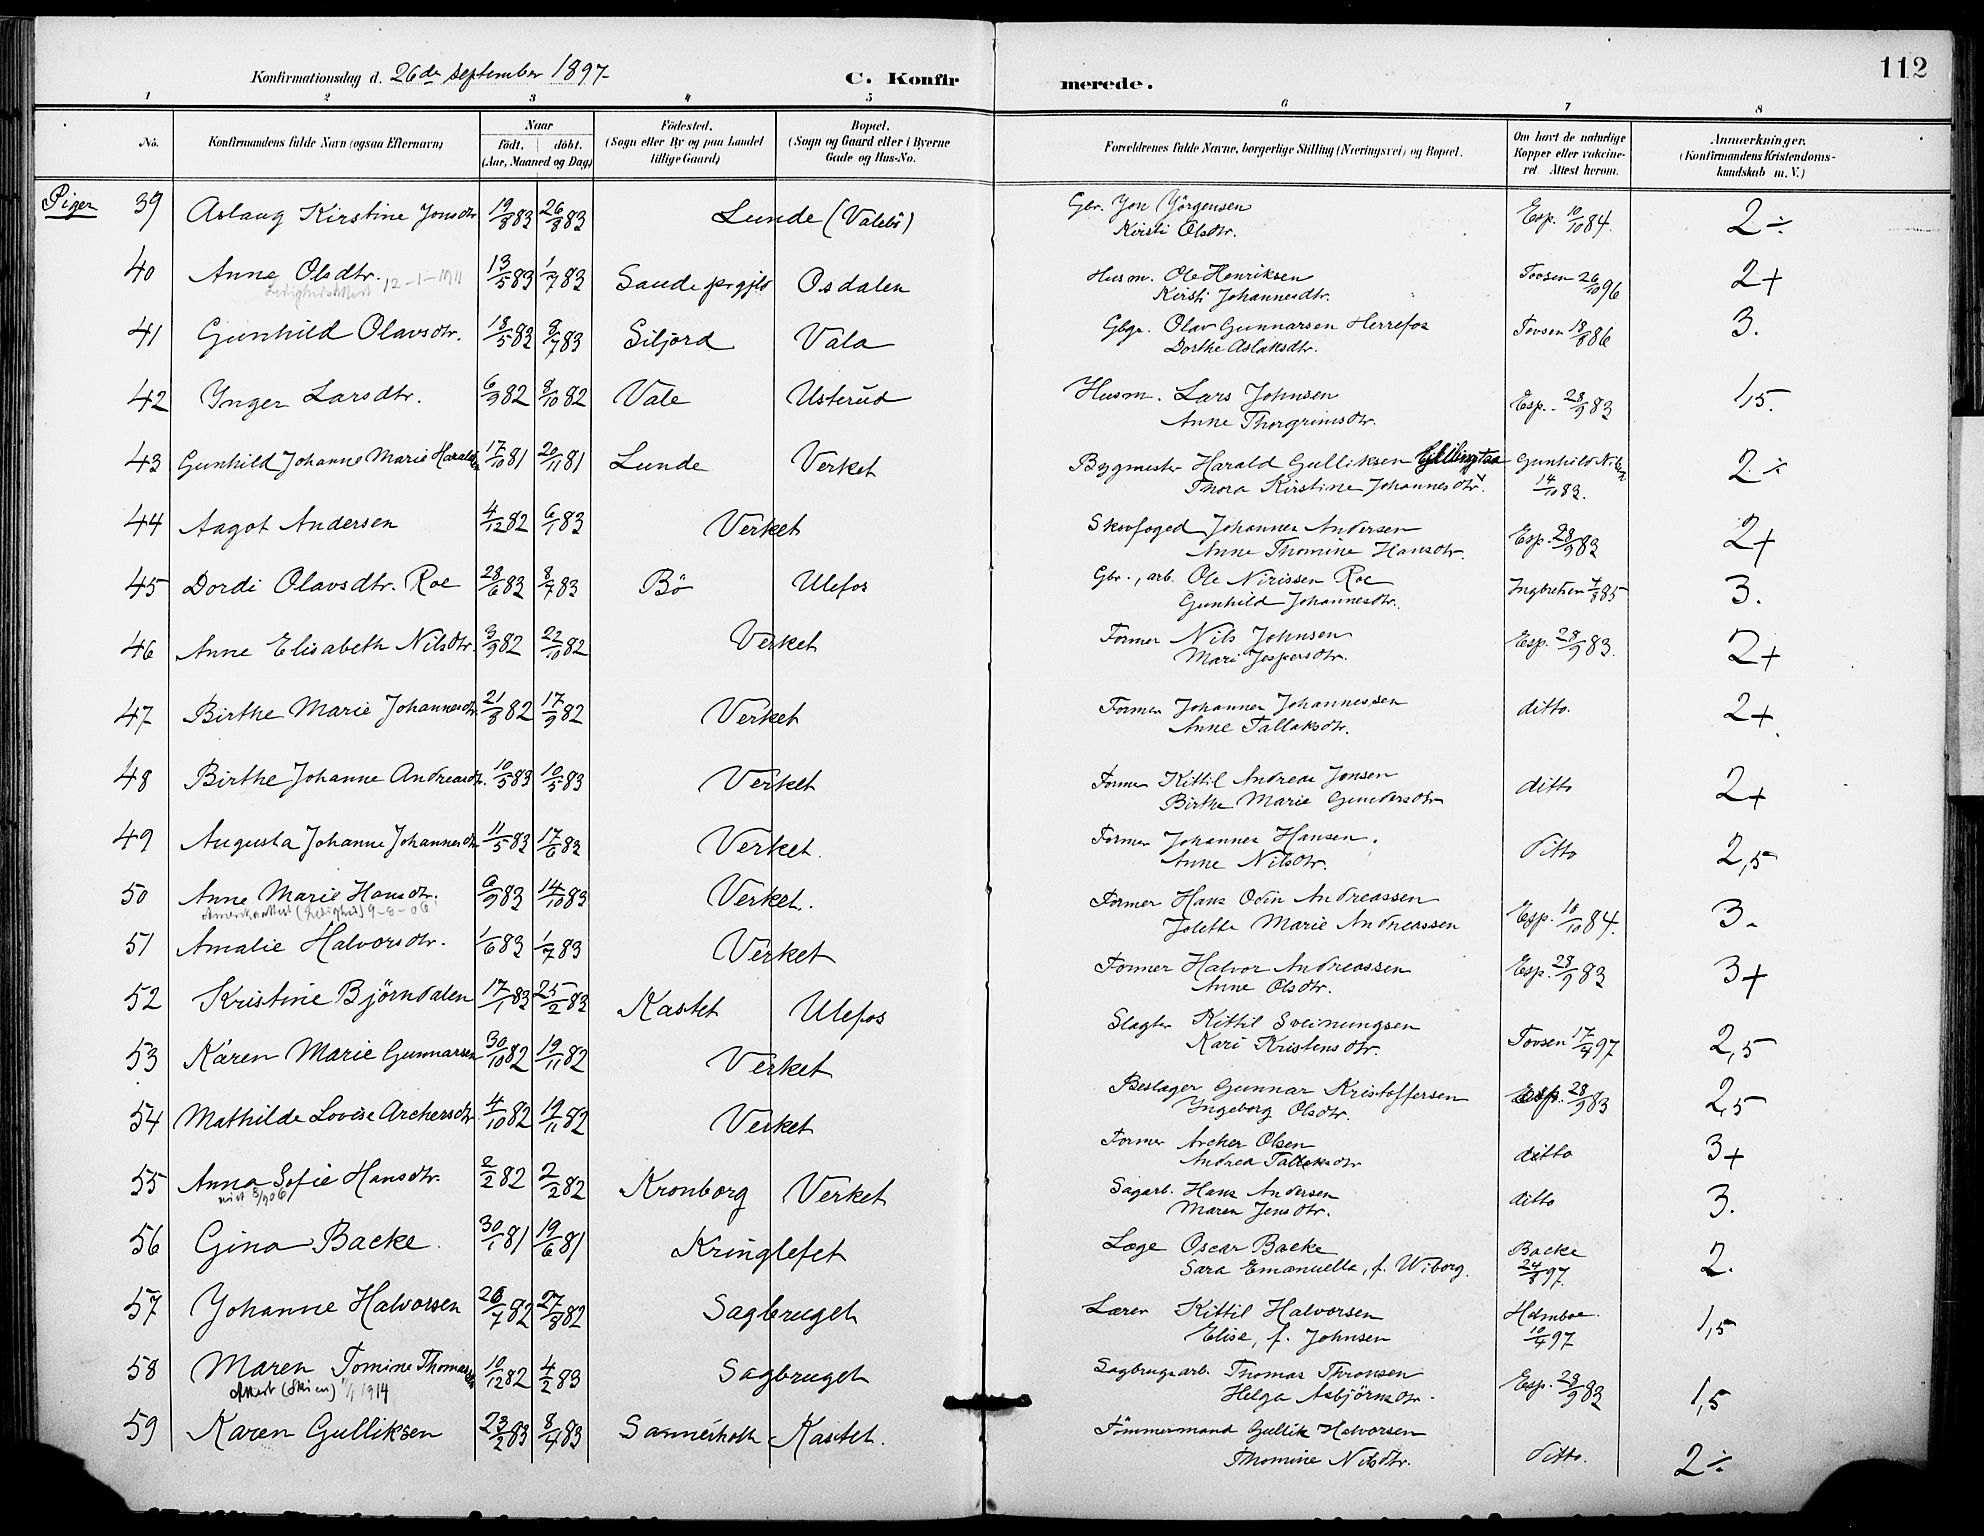 112
Konfirmationsdag d. 26de september 1897-
C. Konfirmerede.
1 2 3 4 5 6 7 8
No.
Konfirmandens fulde Navn (ogsaa Efternavn)
Naar født. døbt. (Aar, Maaned og Dag)
Fødested. (Sogn eller By og paa Landet tillige Gaard)
Bopæl. (Sogn og Gaard eller i Byerne Gade og Hus-No.
Forældrenes fulde Navne, borgerlige Stilling (Næringsvei) og Bopæl.
Om havt de naturlige Kopper eller vakcineret. Attest herom.
Anmerkninger. (Konfirmandens Kristendomskundskab m. V.)
Piger
39 Aslaug Kirstine Jonsdtr 19/8 83 26/8 83 Lunde (Valebö) Gbr. Jon Jörgensen Esp. 10/10 84. 2÷
Kirsti Olsdtr.
40 Anne Olsdtr. 13/5 83 1/7 83 Saude prgjld Osdalen Husm. Ole Henriksen Tovsen 26/10 96 2+
Ledighedsattest 12-1-1911 Kirsti Johannesdtr.
41 Gunhild Olavsdtr. 18/5 83 8/7 83 Siljord Vala Gbgr. Olav Gunnarsen Herrefos Tovsen 18/8 86 3.
Dorthe Aslaksdtr.
42 Inger Larsdtr. 6/9 82 8/10 82 Vale Usterud Husm. Lars Johnsen Esp. 28/9 83 1,5.
Anne Thorgrimsdtr.
43 Gunhild Johanne Marie Haraldsdtr 17/10 81 20/11 81 Lunde Verket Bygmester Harald Gulliksen Gunhild Nilsen 2÷
Thora Kirstine Johannesdtr. 14/10 83.
44 Aagot Andersen 4/12 82 6/1 83 Verket Skovfoged Johannes Andersen Esp. 28/9 83 2+
Anne Thomine Hansdtr.
45 Dordi Olavsdtr. Roe 28/6 83 8/7 83 Bö Ulefos Gbr., arb. Ole Nirissen Roe Ingbretsen 4/8 85 3.
Gunhild Johannesdtr.
46 Anne Elisabeth Nilsdtr. 3/9 82 22/10 82 Verket Former Nils Johnsen Esp. 28/9 83. 2+
Mari Jespersdtr.
47 Birthe Marie Johannesdtr 21/8 82 17/9 82 Verket Former Johannes Johannessen ditto. 2+
Anne Tallaksdtr.
48 Birthe Johanne Andreasdtr. 10/5 83 10/5 83 Verket Former Kittil Andreas Jonsen ditto 2+
Birthe Marie Gundersdtr
49 Augusta Johanne Johannesdtr 11/5 83 17/6 83 Verket. Former Johannes Hansen. ditto 2,5
Anne Nilsdtr.
50 Anne Marie Hansdtr. 6/9 83 14/10 83 Verket. Former Hans Odin Andreassen Esp. 10/10 84. 3.
Amerikaattest (Ledighed) 9-8-06 Jolette Marie Andreassen
51 Amalie Halvorsdtr. 1/6 83 1/7 83 Verket Former Halvor Andreassen Esp. 28/9 83 3+
Anne Olsdtr.
52 Kristine Björndalen 17/1 83 25/2 83 Kastet Ulefos Slagter Kittil Sveinungsen Tovsen 17/4 97 2,5
Kari Kristensdtr.
53 Karen Marie Gunnarsen 30/10 82 19/11 82 Verket Beslager Gunnar Kristoffersen Esp. 28/9 83 2,5
Ingeborg Olsdtr.
54 Mathilde Lovise Archersdtr 4/10 82 19/11 82 Verket Former Archer Olsen ditto 3+
Andrea Tallaksdtr
55 Anna Sofie Hansdtr. 2/2 82 2/2 82 Kronborg Verket Sagarb. Hans Andersen ditto 3.
Maren Jensdtr.
56 Gina Backe. 30/1 81 19/6 81 Kringlefet Læge Oscar Backe Backe 2.
Sara Emanuella, f. Wiborg. 24/8 97
57 Johanne Halvorsen 26/7 82 27/8 82 Sagbruget Lærer Kittil Halvorsen Holmboe. 1,5
Elise, f. Johnsen 10/4 97
58 Maren Tomine Thomasdtr 10/12 82 4/2 83 Sagbruget Sagbrugsarb. Thomas Thronsen Esp. 28/9 83 1,5
Attest (Skien) 1/1 1914 Helga Asbjörnsdtr.
59 Karen Gulliksen 23/2 83 8/4 83 Sannesholt Kastet. Tömmermand Gullik Halvorsen ditto. 2÷
Thomine Nilsdtr.